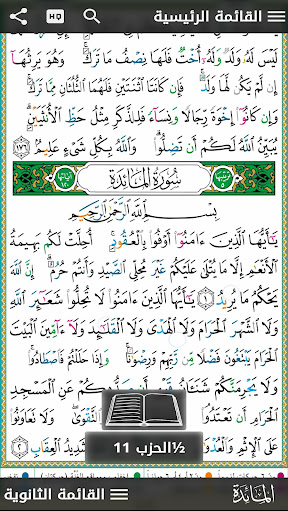 القائمة الرئيسية HQ
لَيْسَ لَهُۥ وَلَدٌ وَلَهُۥٓ أُخْتٌ فَلَهَا نِصْفُ مَا تَرَكَ ۚ وَهُوَ يَرِثُهَآ
إِن لَّمْ يَكُن لَّهَا وَلَدٌ ۚ فَإِن كَانَتَا ٱثْنَتَيْنِ فَلَهُمَا ٱلثُّلُثَانِ مِمَّا تَرَكَ ۚ
وَإِن كَانُوٓا۟ إِخْوَةً رِّجَالًا وَنِسَآءً فَلِلذَّكَرِ مِثْلُ حَظِّ ٱلْأُنثَيَيْنِ ۗ
يُبَيِّنُ ٱللَّهُ لَكُمْ أَن تَضِلُّوا۟ ۗ وَٱللَّهُ بِكُلِّ شَىْءٍ عَلِيمٌۢ ١٧٦
سُورَةُ المَائِدَةِ
بِسْمِ ٱللَّهِ ٱلرَّحْمَٰنِ ٱلرَّحِيمِ
يَٰٓأَيُّهَا ٱلَّذِينَ ءَامَنُوٓا۟ أَوْفُوا۟ بِٱلْعُقُودِ ۚ أُحِلَّتْ لَكُم بَهِيمَةُ
ٱلْأَنْعَٰمِ إِلَّا مَا يُتْلَىٰ عَلَيْكُمْ غَيْرَ مُحِلِّى ٱلصَّيْدِ وَأَنتُمْ حُرُمٌ ۗ إِنَّ ٱللَّهَ
يَحْكُمُ مَا يُرِيدُ ١ يَٰٓأَيُّهَا ٱلَّذِينَ ءَامَنُوا۟ لَا تُحِلُّوا۟ شَعَٰٓئِرَ ٱللَّهِ
وَلَا ٱلشَّهْرَ ٱلْحَرَامَ وَلَا ٱلْهَدْىَ وَلَا ٱلْقَلَٰٓئِدَ وَلَآ ءَآمِّينَ ٱلْبَيْتَ
ٱلْحَرَامَ يَبْتَغُونَ فَضْلًا مِّن رَّبِّهِمْ وَرِضْوَٰنًا ۚ وَإِذَا حَلَلْتُمْ فَٱصْطَادُوا۟ ۚ
وَلَا يَجْرِمَنَّكُمْ شَنَـَٔانُ قَوْمٍ أَن صَدُّوكُمْ عَنِ ٱلْمَسْجِدِ
ٱلْحَرَامِ أَن وَٱلتَّقْوَىٰ ۖ وَلَا تَعَاوَنُوا۟
عَلَى ٱلْإِثْمِ وَٱلْعُدْ شَدِيدُ ٱلْعِقَابِ ٢
½الحزب 11
القائمة الثانوية المَائِدَة